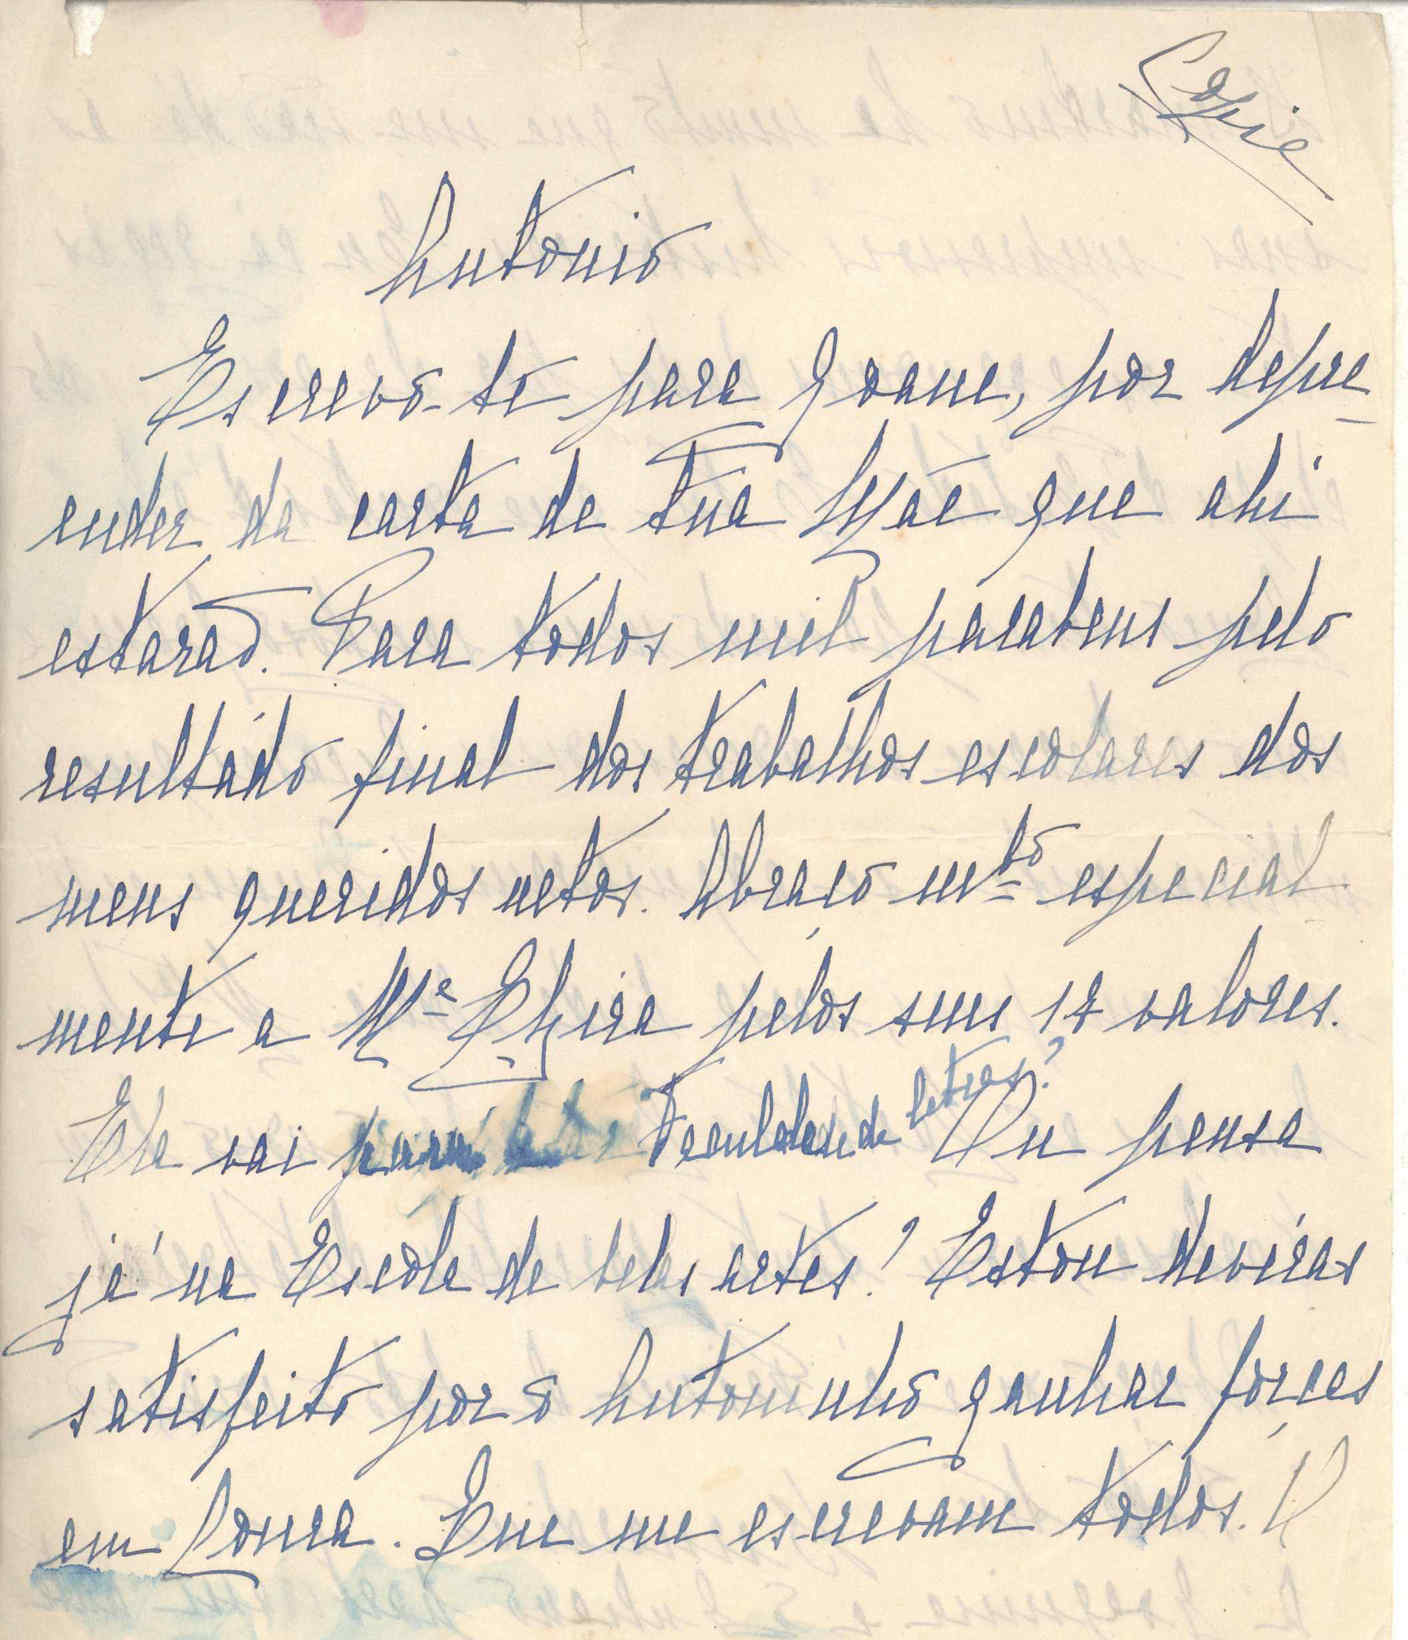 Copie
Antonio
Escrevo-te para Joane, por depre-
ender da carta de tua Mãe que ahi
estarão. Para todos mil parabens pelo
resultado final dos trabalhos escolares dos
meus queridos netos. Abraço mto especial
mente a Ma Elzira pelos seus 17 valores.
Ela vai para Faculdade de letras? Ou pensa
já na Escola de belas artes? Estou devéras
satisfeito por o Antoninho ganhar forças
em Lousa. Que me escrevam todos.